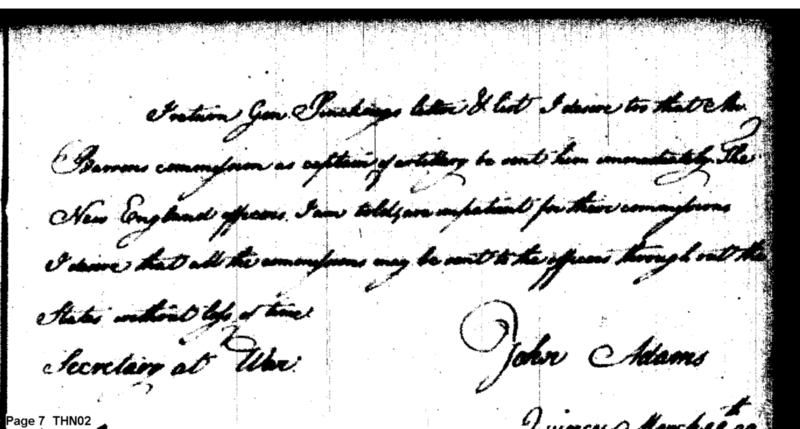 I return Gen. Pinckneys letter & list I desire too that Mr.
Barrons commission as captain of artillery be sent him immediately. The
New England officers, I am told, are impatient for their commissions
I desire that all the commissions may be sent to the officers through out the
States without loss of time.
Secretary at War. John Adams
Quincy March
Page 7 THN02